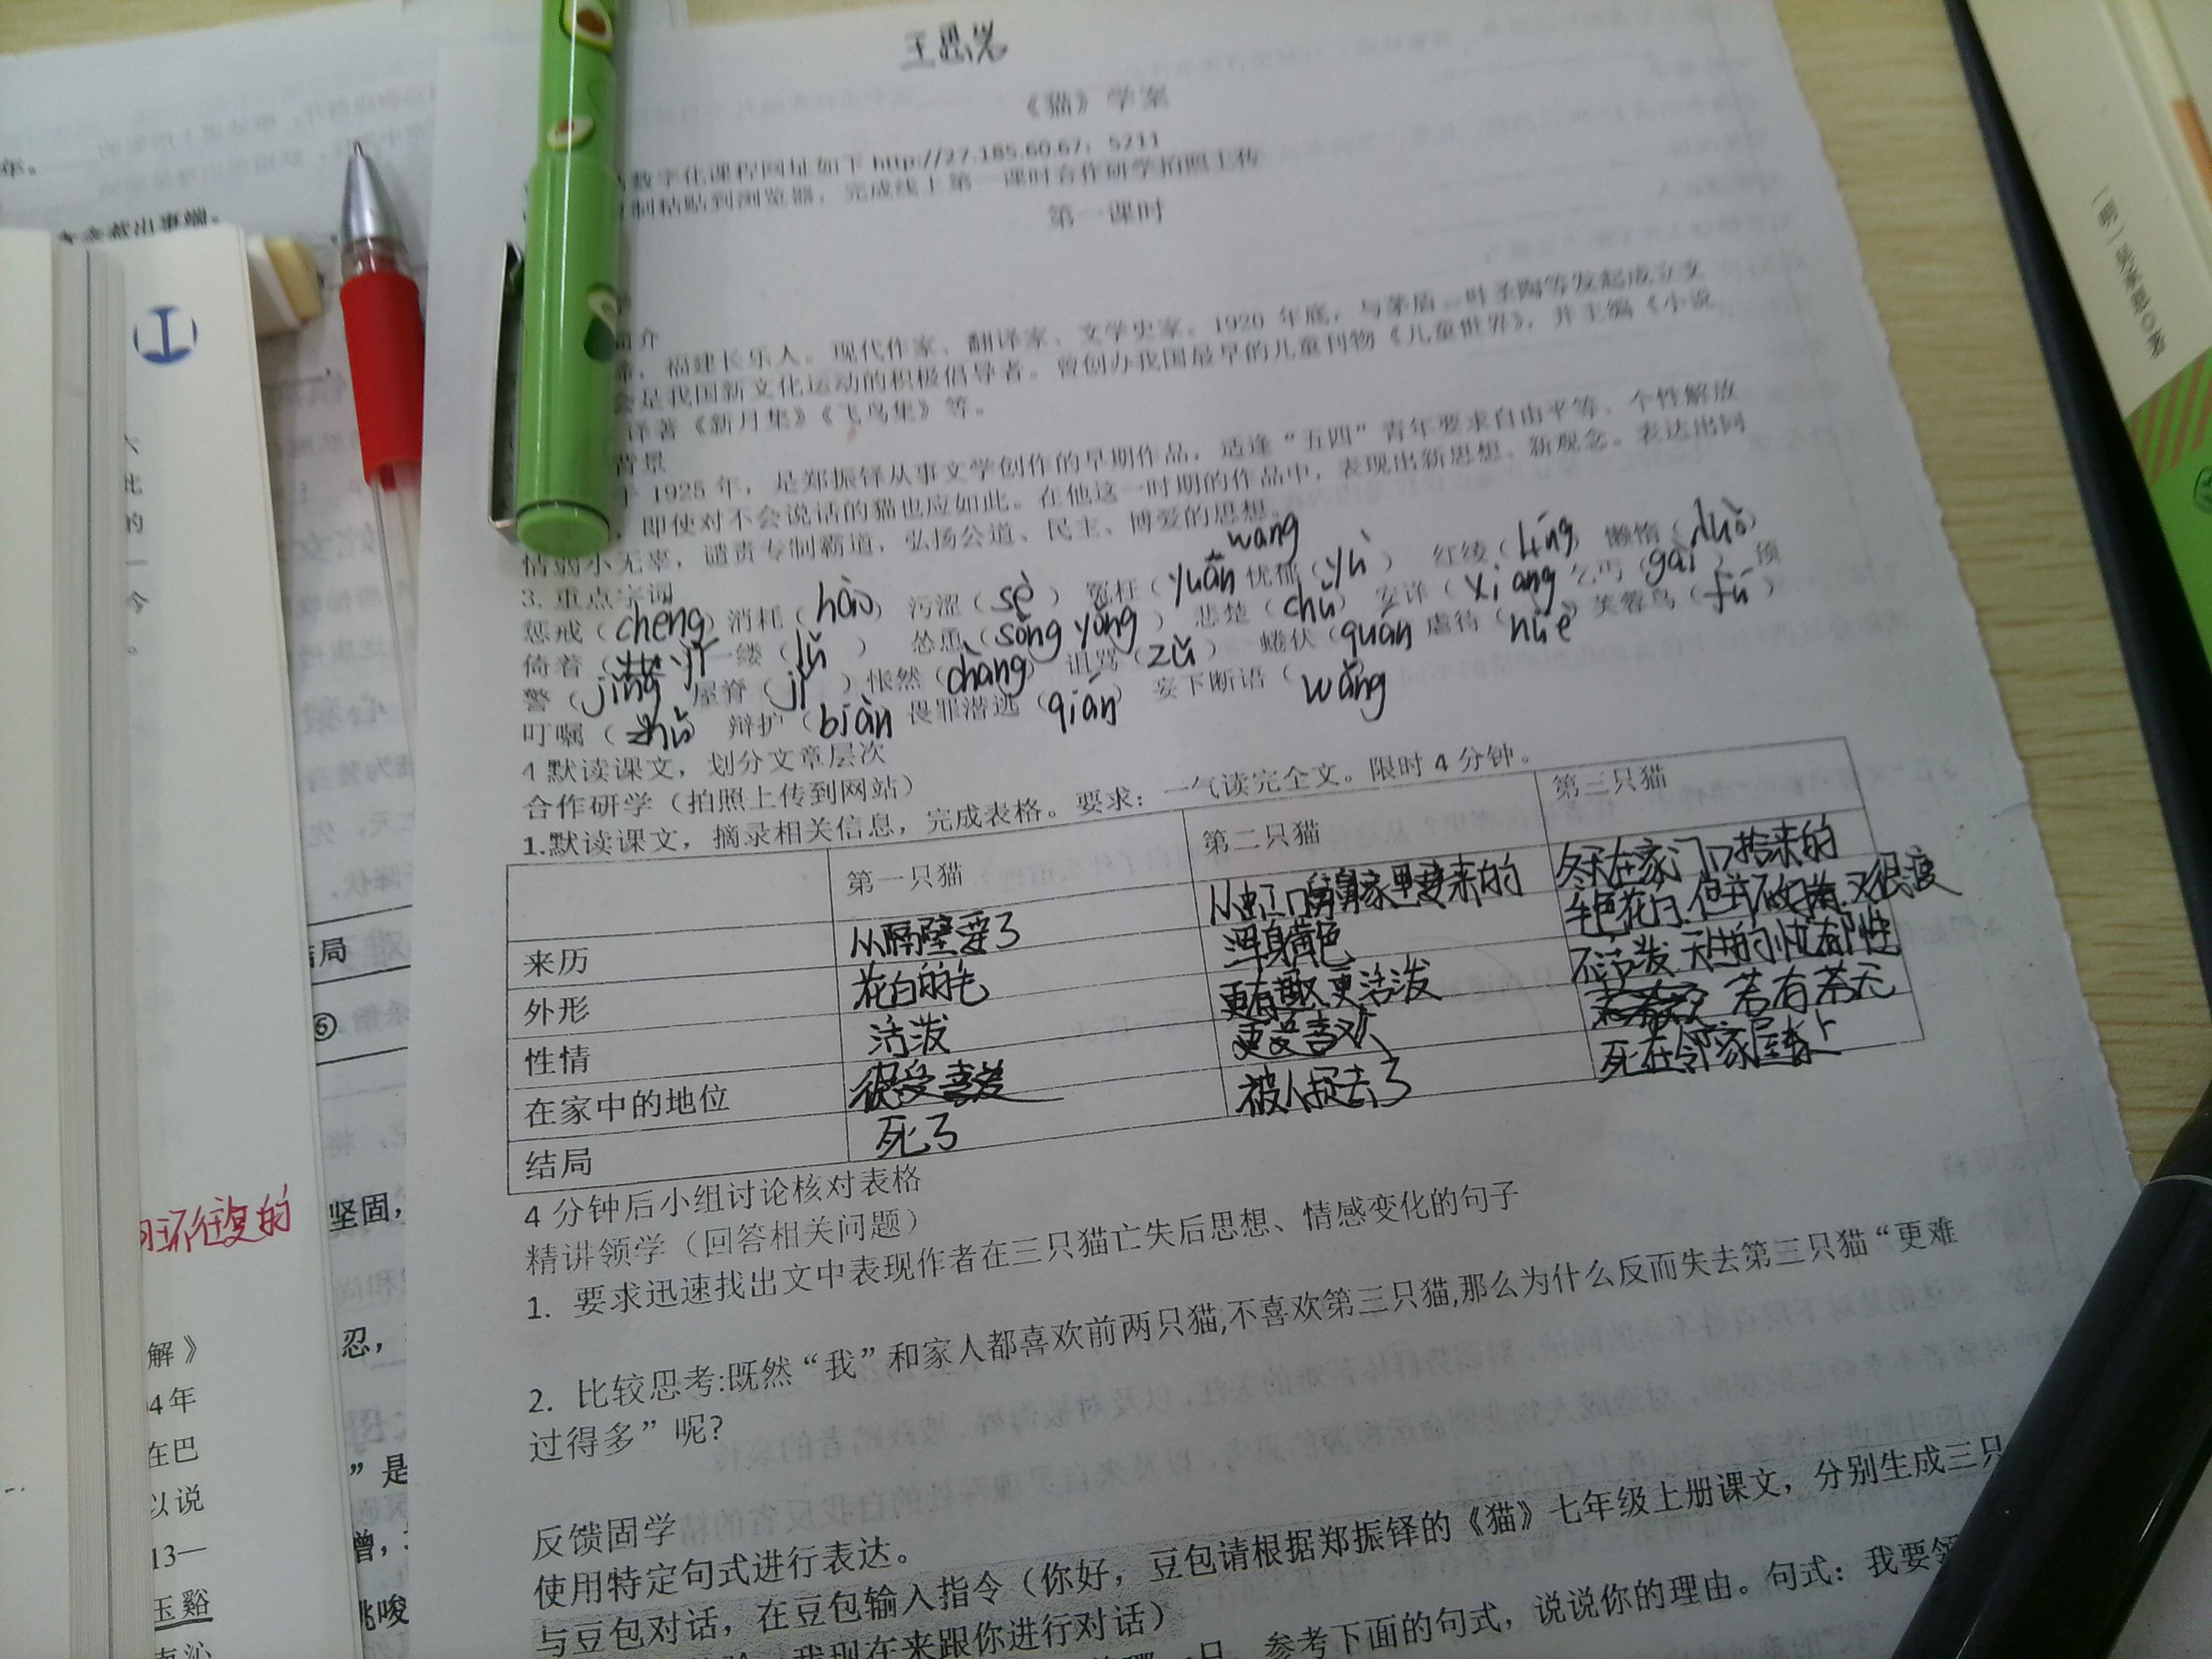 王思
《猫》学案
数字化课程网址如下 http://27.185.60.67：5211
制粘贴到浏览器，完成线上第一课时合作研学拍照上传
第一课时
简介
，福建长乐人。现代作家、翻译家、文学史家。1920 年底，与茅盾、叶圣陶等发起成立文
会是我国新文化运动的积极倡导者。曾创办我国最早的儿童刊物《儿童世界》，并主编《小说
译著《新月集》《飞鸟集》等。
背景
于 1925 年，是郑振铎从事文学创作的早期作品，适逢“五四”青年要求自由平等、个性解放
，即使对不会说话的猫也应如此。在他这一时期的作品中，表现出新思想、新观念。表达出同
情弱小无辜，谴责专制霸道，弘扬公道、民主、博爱的思想。
3. 重点字词
惩戒（chéng）消耗（hào） 污涩（sè） 冤枉（yuān wang 忧郁（yù） 红绫（líng 懒惰（duò）
倚着（yǐ 一缕（lǚ ） 怂恿（sǒng yǒng ） 悲楚（chǔ） 安详（xiang 乞丐（gài ） 预
警（jǐng 屋脊（jǐ ）怅然（chàng） 诅骂（zǔ） 蜷伏（quán 虐待（nüè 芙蓉鸟（fú）
叮嘱（zhǔ 辩护（biàn 畏罪潜逃（qián） 妄下断语（wàng
4 默读课文，划分文章层次
合作研学（拍照上传到网站）
1.默读课文，摘录相关信息，完成表格。要求：一气读完全文。限时 4 分钟。
第一只猫 第二只猫 第三只猫
来历 从隔壁要了 从虹口舅舅家里要来的 冬天在家门口拾来的
外形 花白的毛 浑身黄色 毛色花白，但并不好看，又很瘦
性情 活泼 更有趣、更活泼 不活泼 天生的忧郁性
在家中的地位 很受喜爱 更受喜欢 若有若无
结局 死了 被人捉去了 死在邻家屋脊上
4 分钟后小组讨论核对表格
精讲领学（回答相关问题）
1. 要求迅速找出文中表现作者在三只猫亡失后思想、情感变化的句子
2. 比较思考:既然“我”和家人都喜欢前两只猫,不喜欢第三只猫,那么为什么反而失去第三只猫“更难
过得多”呢?
反馈固学
使用特定句式进行表达。
与豆包对话，在豆包输入指令（你好，豆包请根据郑振铎的《猫》七年级上册课文，分别生成三只
我现在来跟你进行对话）
只，参考下面的句式，说说你的理由。句式：我要领
年。
此
的
一
今
结局
⑥
环往复的
坚固，
忍，
解》
4年
在巴
以说
13—
玉谿
”是
曾，
兆唆